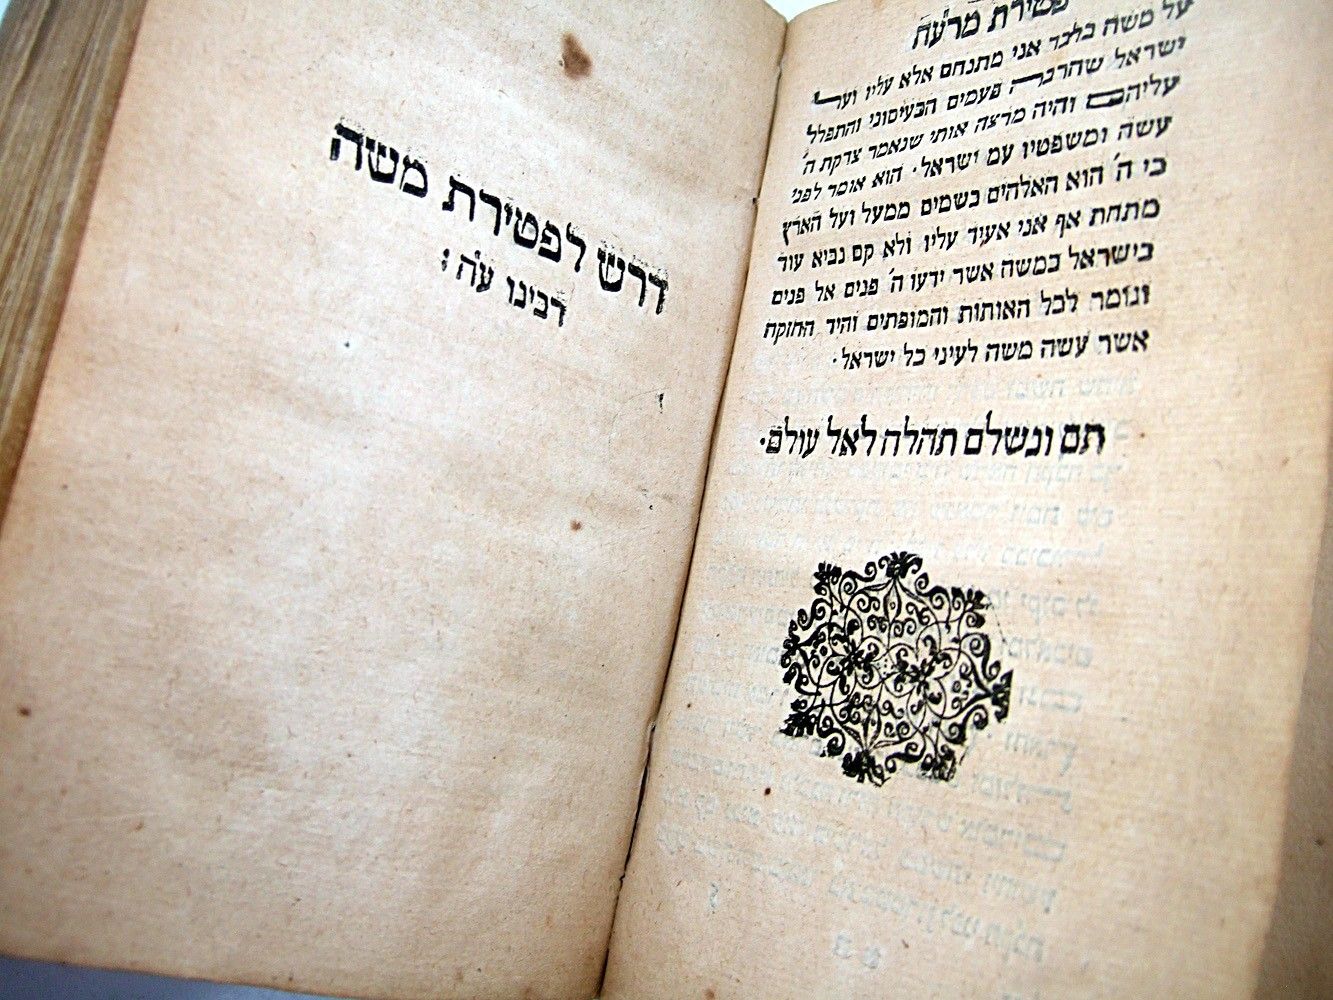 פטירת מרע֗ה
על משה בלבד אני מתנחם אלא עליו ועל
ישראל שהרבה פעמים הכעיסוני והתפלל
עליהם והיה מרצה אותי שנאמר צדקת ה'
עשה ומשפטיו עם ישראל· הוא אומר לפני
כי ה' הוא האלהים בשמים ממעל ועל הארץ
מתחת אף אני אעיד עליו ולא קם נביא עוד
בישראל כמשה אשר ידעו ה' פנים אל פנים
ונומר לכל האותות והמופתים והיד החזקה
אשר עשה משה לעיני כל ישראל·
תם ונשלם תהלה לאל עולם·
דרש לפטירת משה
רבינו ע֗ה :